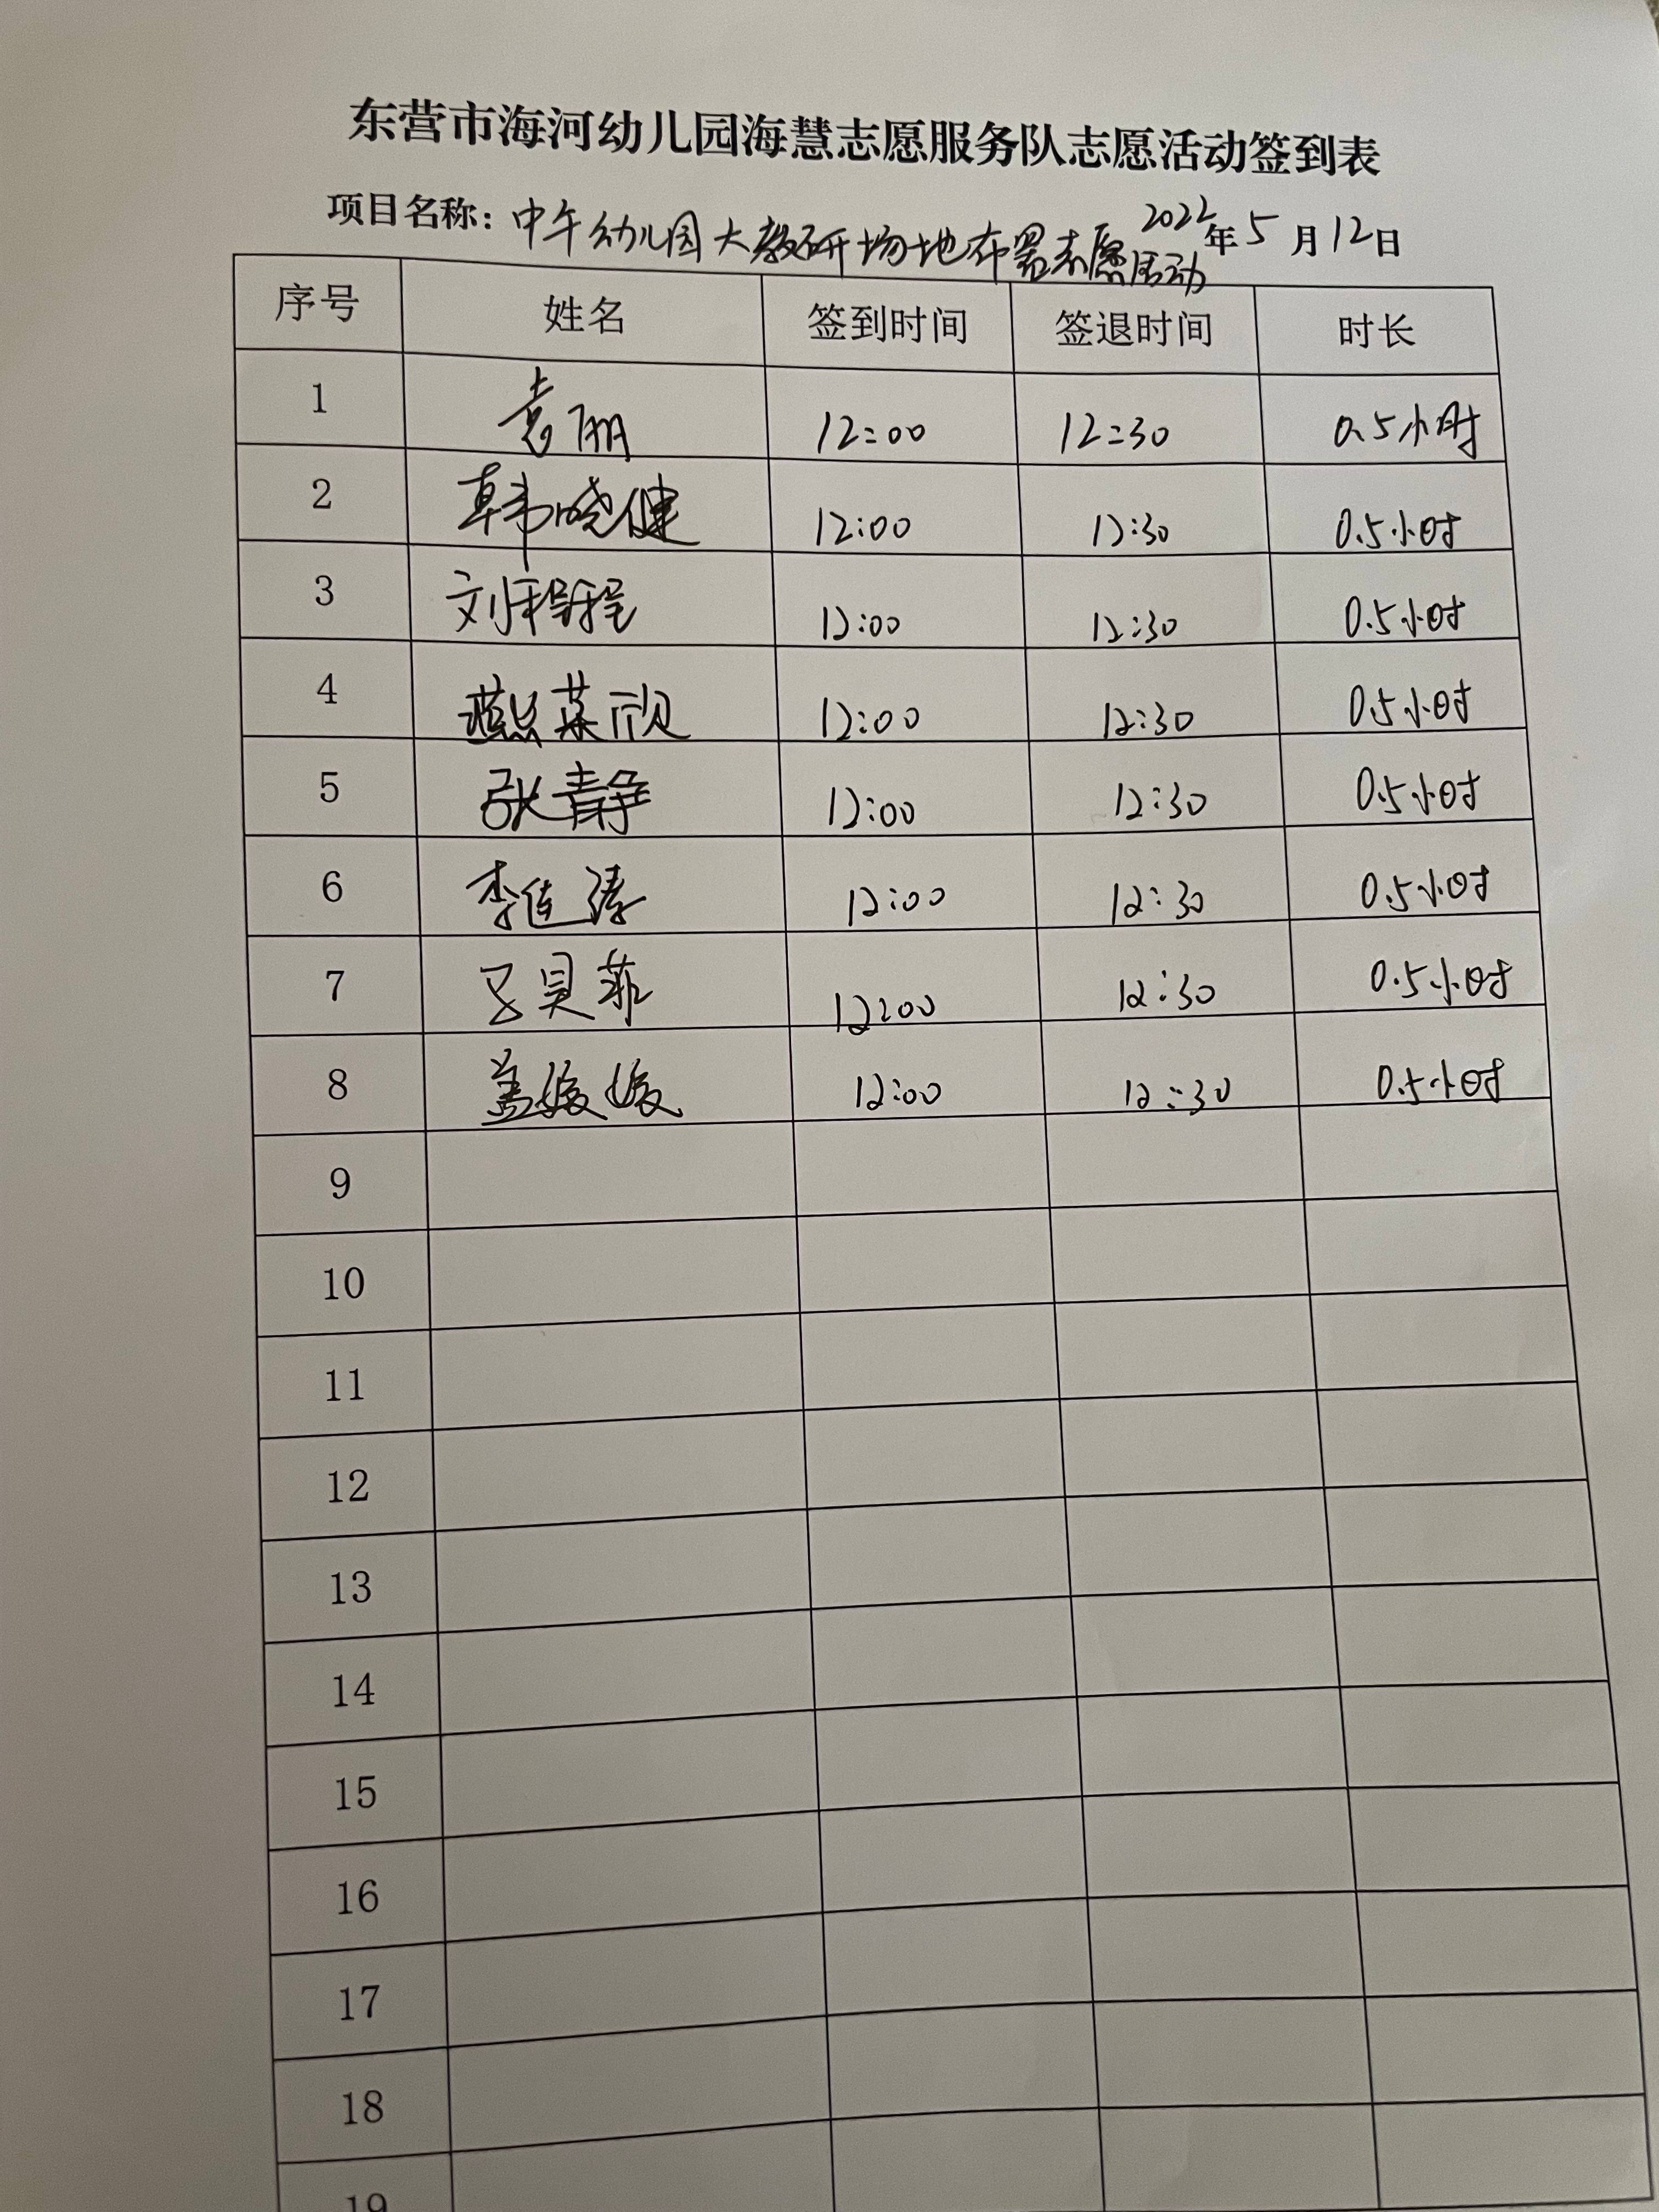 东营市海河幼儿园海慧志愿服务队志愿活动签到表
项目名称：中午幼儿园大教研场地布置志愿活动 2022年5月12日
序号 姓名 签到时间 签退时间 时长
1 袁丽 12:00 12:30 0.5小时
2 韩晓健 12:00 12:30 0.5小时
3 刘程程 12:00 12:30 0.5小时
4 燕荣欣 12:00 12:30 0.5小时
5 张青静 12:00 12:30 0.5小时
6 李连涛 12:00 12:30 0.5小时
7 贝菲 12:00 12:30 0.5小时
8 盖媛媛 12:00 12:30 0.5小时
9
10
11
12
13
14
15
16
17
18
19